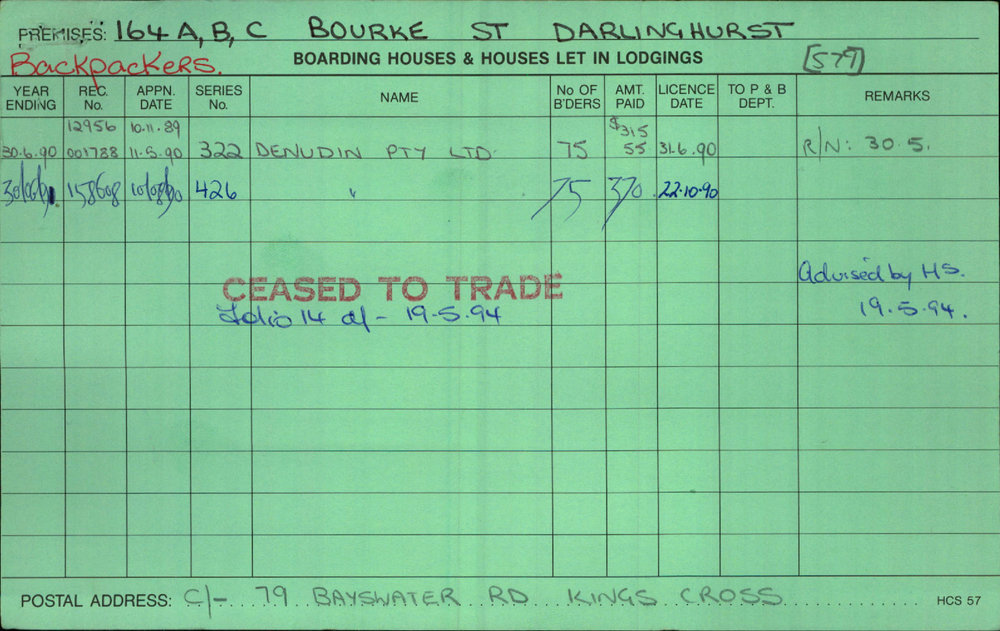 PREMISES: 164 A, B, C BOURKE ST DARLINGHURST
Backpackers. BOARDING HOUSES & HOUSES LET IN LODGINGS [579]
YEAR ENDING REC. No. APPN. DATE SERIES No. NAME No OF B'DERS AMT. PAID LICENCE DATE TO P & B DEPT. REMARKS
12956 10.11.89 $315
30.6.90 001788 11.5.90 322 DENUDIN PTY LTD 75 55 31.6.90 R/N: 30.5.
30/06/91. 158608 10/08/90 426 " 75 370 22.10.90
CEASED TO TRADE Advised by HS.
Folio 14 of - 19.5.94 19.5.94.
POSTAL ADDRESS: C/- 79 BAYSWATER RD KINGS CROSS HCS 57